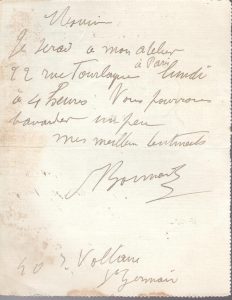 Monsieur
Je serai à mon atelier
22 rue Tourlaque à Paris lundi
à 4 heures Nous pourrons
bavarder un peu
mes meilleurs sentiments
Bonnard
20 r. Voltaire
St Germain